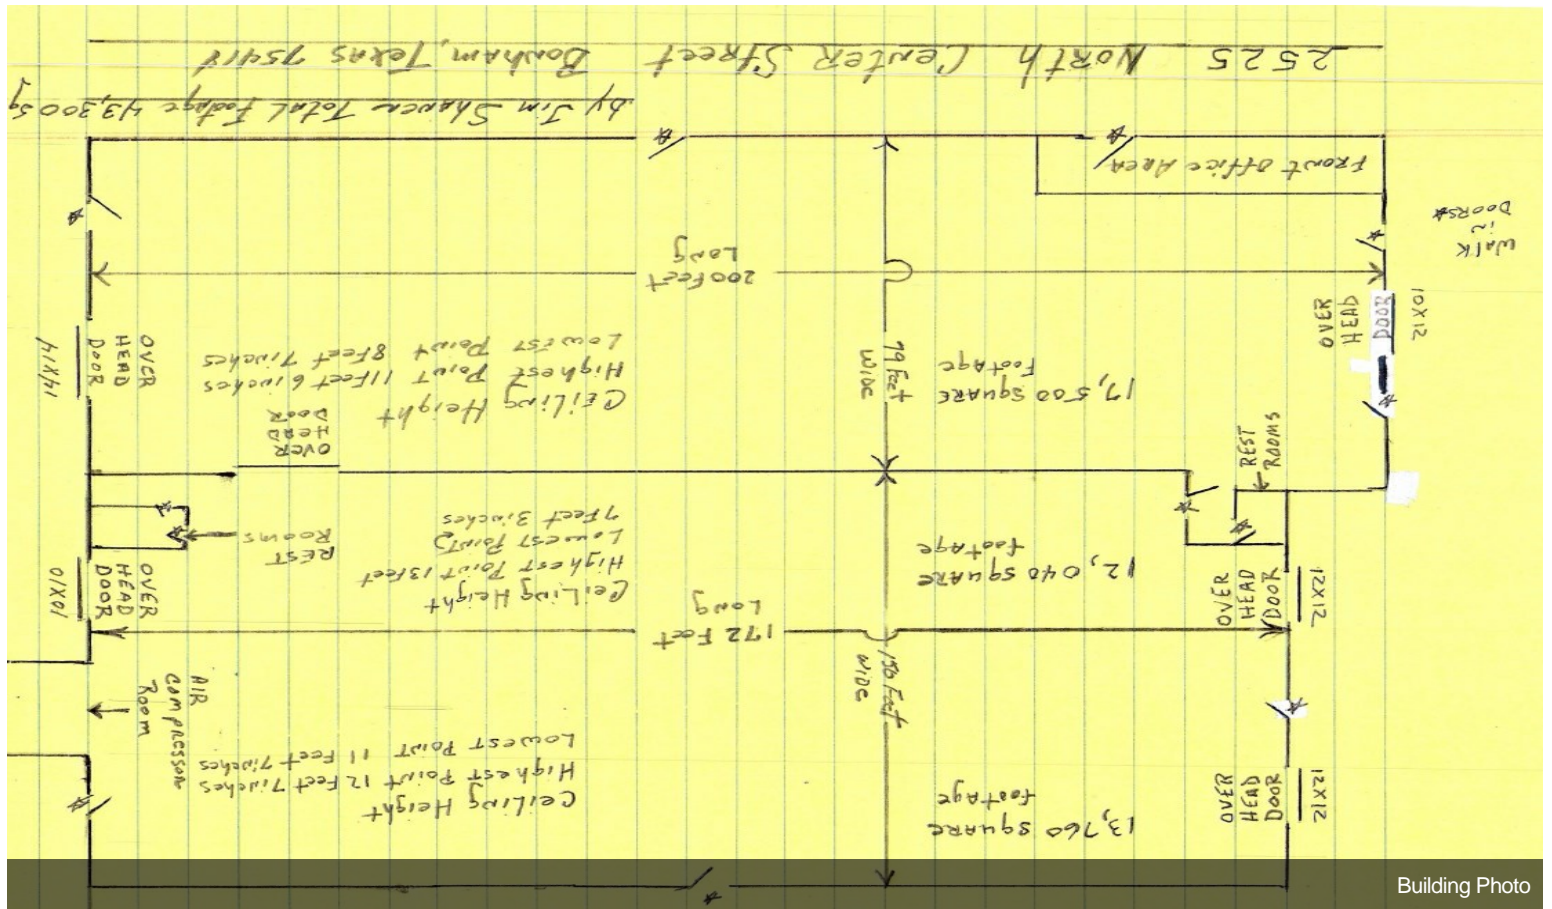 2525 North Center Street Bonham, Texas 75418
by Jim Shaver Total Footage 43,300 Sq
Front Office Area
Walk
in
Doors
200 Feet
Long
OVER
HEAD
DOOR
10X12
OVER
HEAD
DOOR
14X14
Ceiling Height
Highest Point 11 Feet 6 inches
Lowest Point 8 Feet 7 inches
79 Feet
Wide
17,500 Square
Footage
OVER
HEAD
DOOR
REST
ROOMS
REST
Rooms
Ceiling Height
Highest Point 13 Feet
Lowest Point
7 Feet 3 inches
12,040 Square
footage
OVER
HEAD
DOOR
10X10
OVER
HEAD
DOOR
12X12
172 Feet
Long
150 Feet
Wide
AIR
Compressor
Room
Ceiling Height
Highest Point 12 Feet 7 inches
Lowest Point 11 Feet 7 inches
13,760 Square
footage
OVER
HEAD
DOOR
12X12
Building Photo